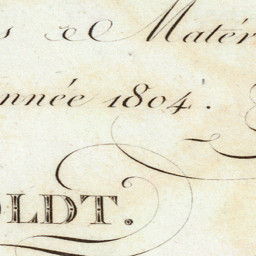 s & Matér
nnée 1804.
OLDT.